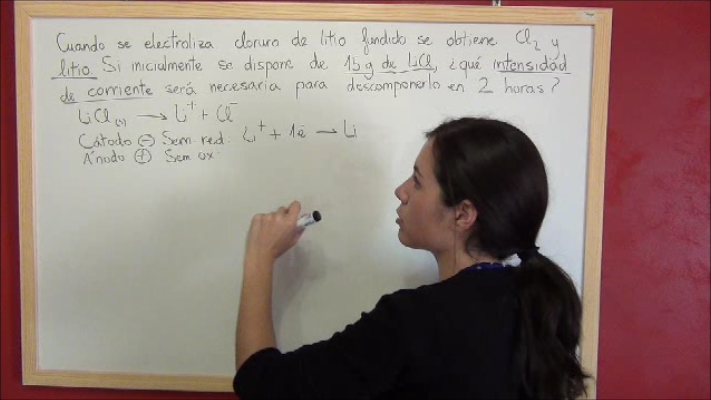 Cuando se electroliza cloruro de litio fundido se obtiene Cl₂ y
litio. Si inicialmente se dispone de 15 g de LiCl, ¿qué intensidad
de corriente será necesaria para descomponerlo en 2 horas?
LiCl → Li⁺ + Cl⁻
Cátodo ⊖ Sem red. Li⁺ + 1e⁻ → Li
Ánodo ⊕ Sem ox